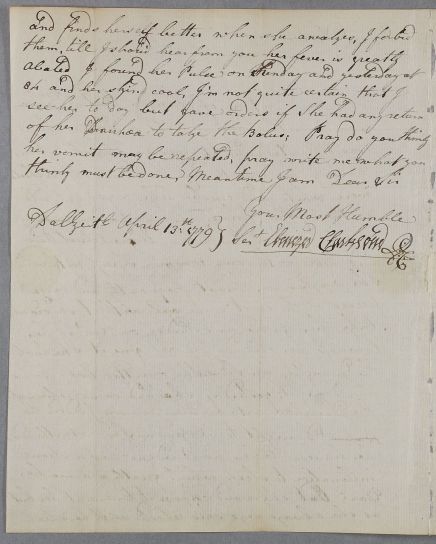 and finds herself better when she areatzes, I forbid
them, till I should hear from you her fever is greatly
abated I found her Pulse on Sunday and yesterday at
84 and her skind cool, I'm not quite certain that I
see her to day but gave orders if she had any return
of her Diarihea to take the Bolus; Pray do you think
her vomit may be repeated, pray write me what you
think must be done, Meantime I am Dear Sir
Your Most Humble
Dalzeith April 13th 1779} Sert Clarkson